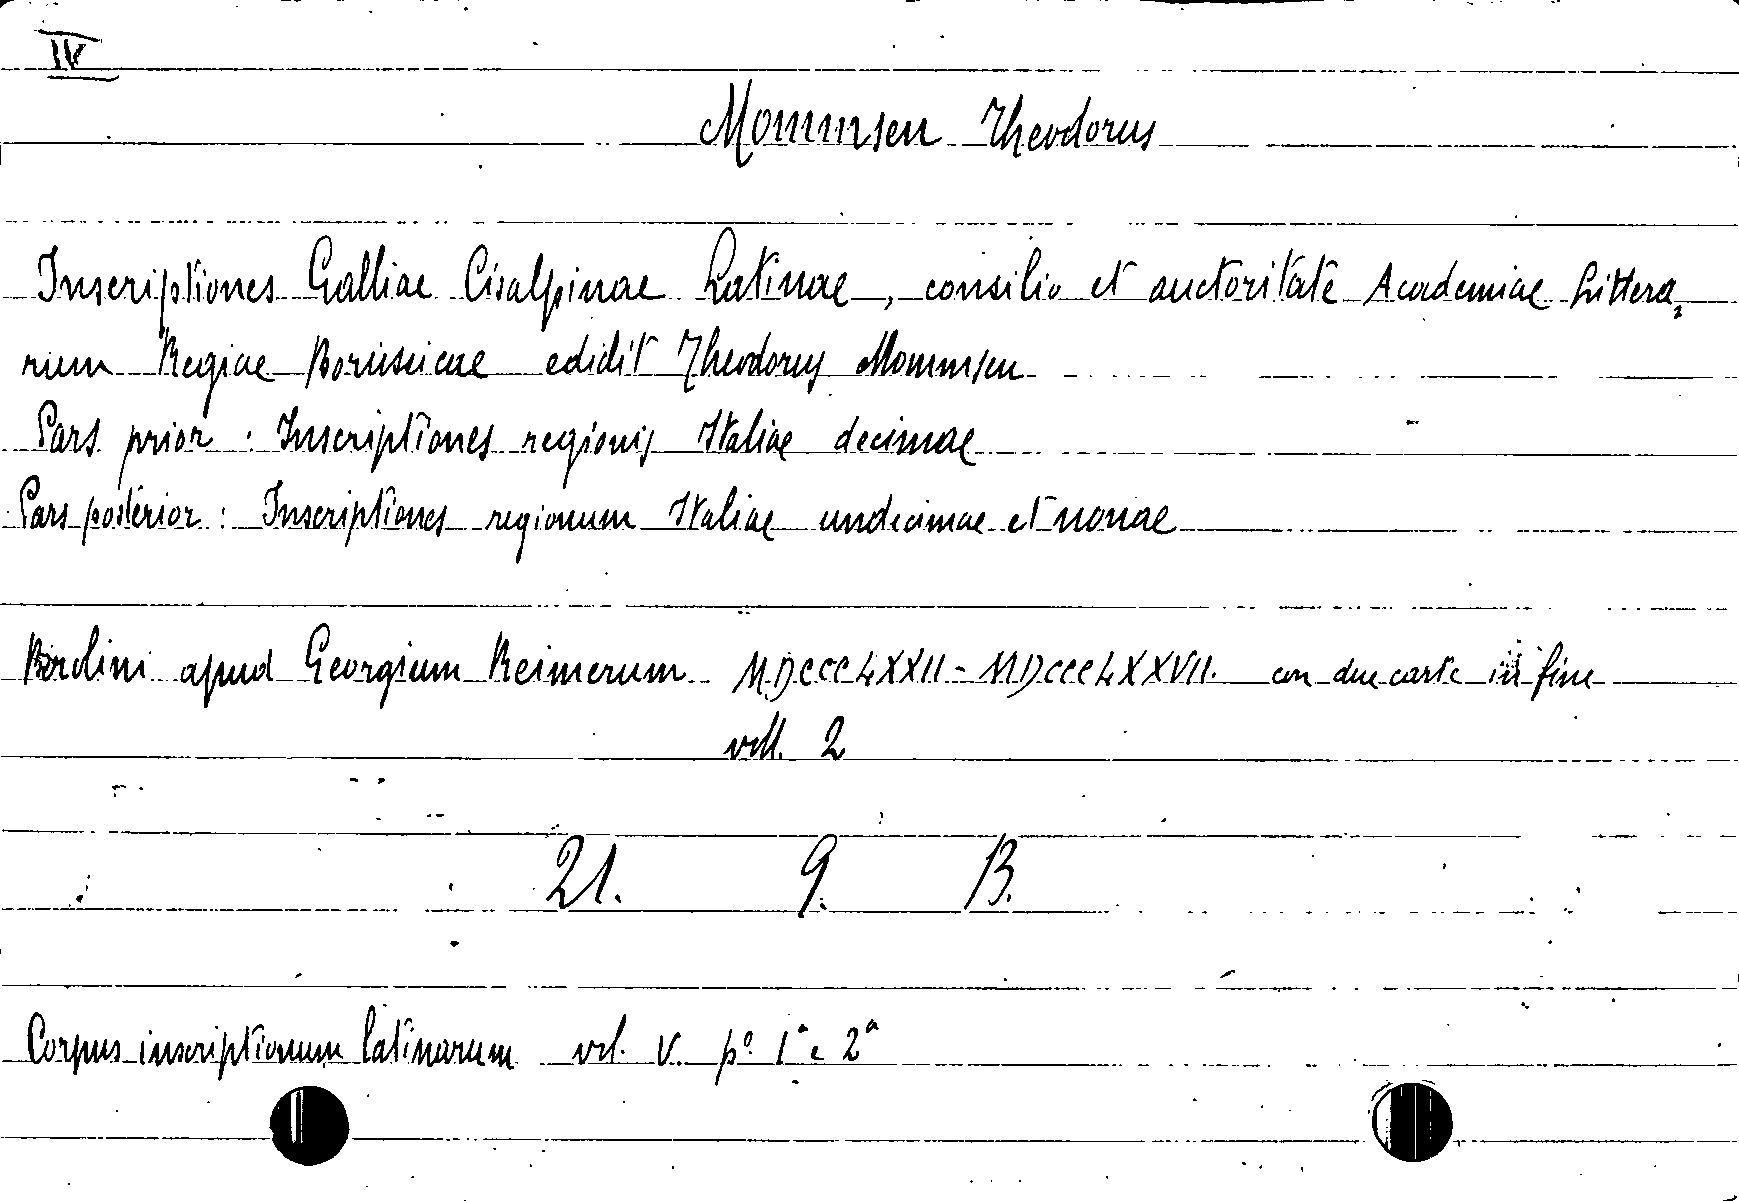 IV
Mommsen Theodorus
Inscriptiones Galliae Cisalpinae Latinae, consilio et auctoritate Academiae Littera=
rum Regiae Borussicae edidit Theodorus Mommsen
Pars prior : Inscriptiones regionis Italiae decimae
Pars posterior : Inscriptiones regionum Italiae undecimae et nonae
Berolini apud Georgium Reimerum MDCCCLXXII - MDCCCLXXVII. con due carte in fine
voll. 2
21. 9. B.
Corpus inscriptionum latinarum vol. V. pº 1ª e 2ª